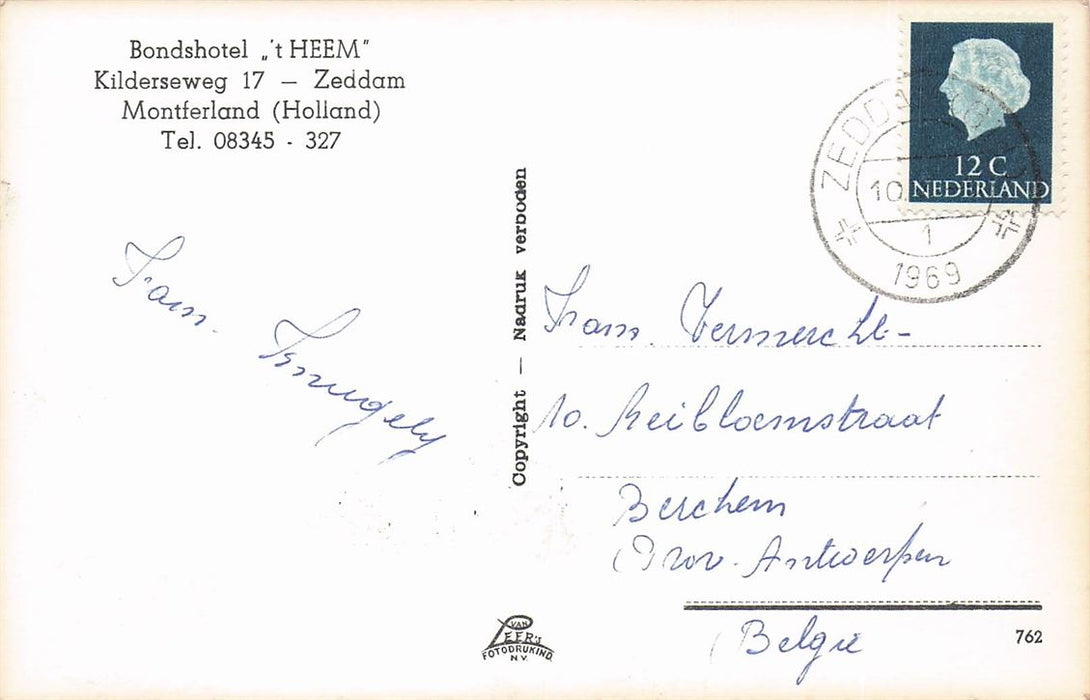 Bondshotel „'t HEEM"
Kilderseweg 17 — Zeddam
Montferland (Holland)
Tel. 08345 - 327
12 C
NEDERLAND
ZEDD
10
1
1969
Copyright — Nadruk verboden
Fam.
Fam.
10.
Berchem
(Prov. Antwerpen
(België
VAN
LEER'S
FOTODRUKIND.
N.V.
762